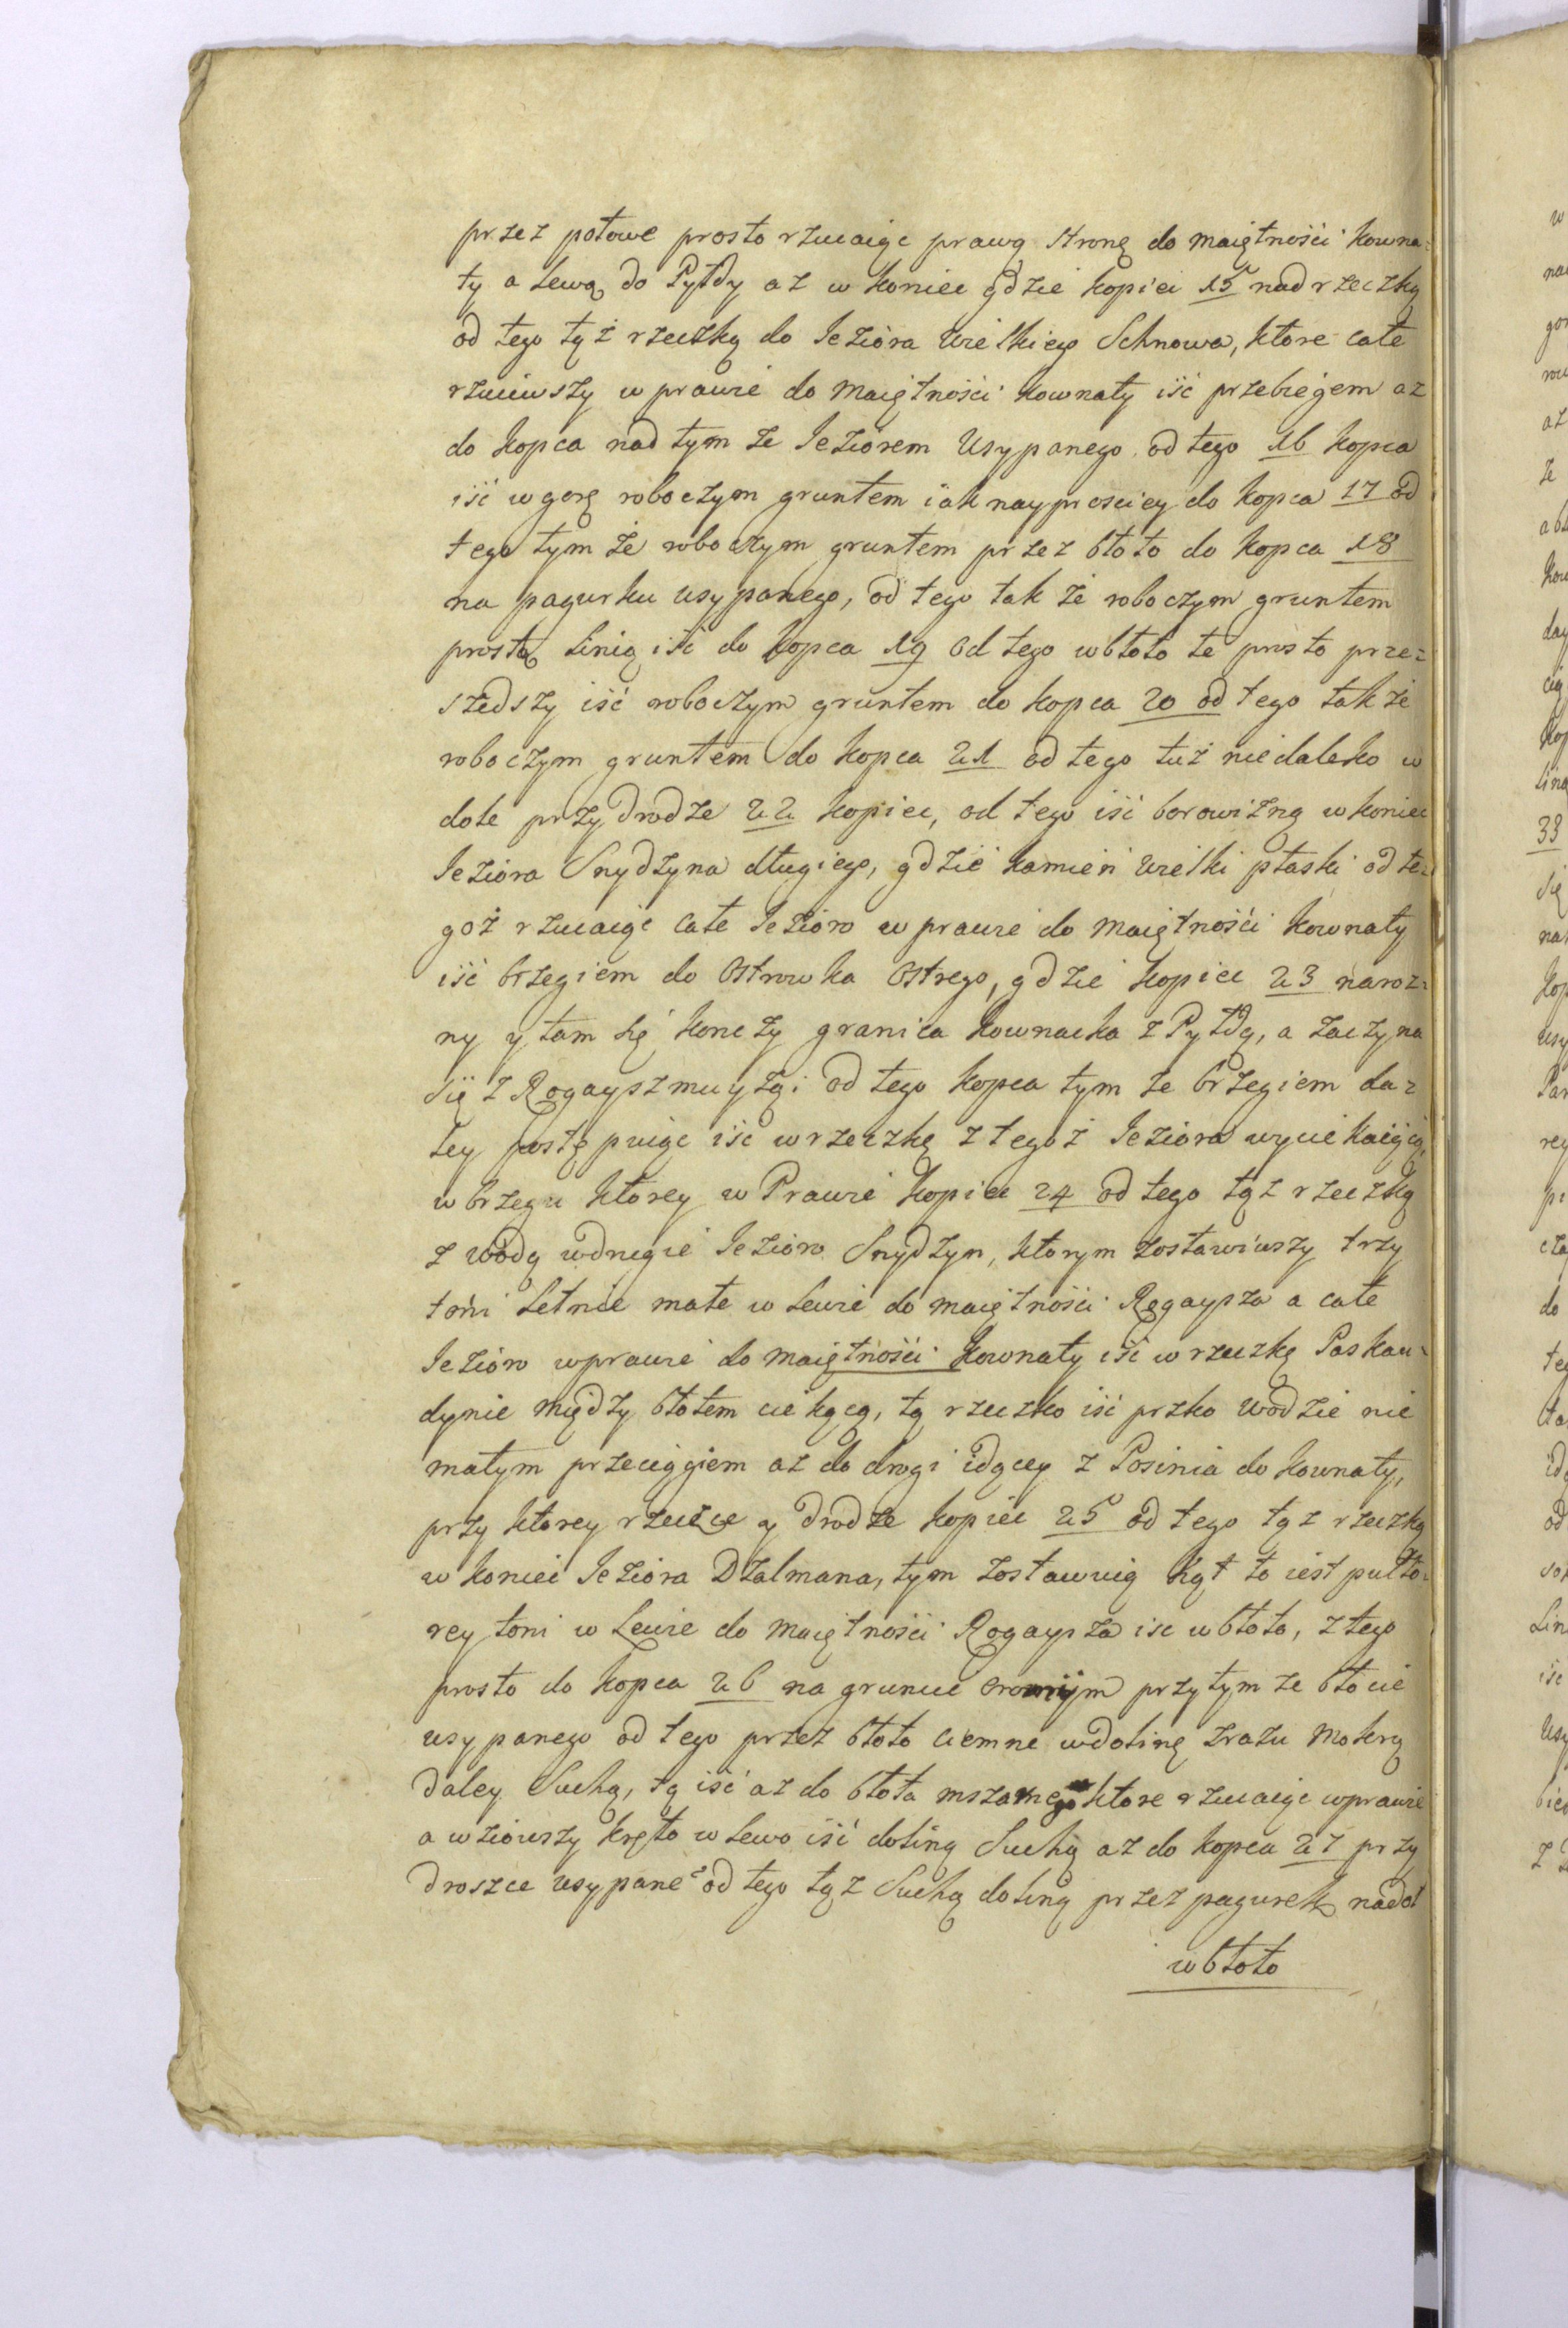 przez połowe prosto rzucaiąc prawą stronę do maiętnośći Kowna=
ty a Lewą do Pyłdy az w koniec gdzie kopiec 15 nad rzeczką
od tego tąż rzeczką do Jeziora Wielkiego Schnowa, ktore całe
rzuciwszy w prawie do maiętnośći Kownaty iść przebiegem az
do kopca nad tym ze Jeziorem Usypanego od tego 16 kopca
iść w gorę roboczym gruntem iak nayprosciey do kopca 17 od
tego tym że roboczym gruntem przez błoto do kopca 18
na pagurku usypanego, od tego tak że roboczym gruntem
prostą Linią iść do kopca 19 od tego w błoto te prosto prze=
szedszy iść roboczym gruntem do kopca 20 od tego tak że
roboczym gruntem do kopca 21 od tego tuż niedaleko w
dole przy drodze 22 kopiec, od tego iść borowizną w koniec
Jeziora Snydzyna długiego, gdzie kamień wielki płaski od te=
goż rzucaiąc całe Jezioro w prawie do maiętnośći Kownaty
iść brzegiem do Ostrowka Ostrego, gdzie kopiec 23 naroz=
ny y tam się konczy granica Kownacka z Pyłdą, a zaczyna
się z Rogayszmuyżą: od tego kopca tym ze brzegiem da=
ley postępuiąc iść w rzeczkę z tegoż Jeziora wyciekaiącą,
w brzegu ktorey w Prawie kopiec 24 od tego tąż rzeczką
z wodą w drugie Jezioro Snydzyn, ktorym zostawiwszy trzy
tońi Letnie małe w Lewie do maiętnośći Rogaysza a całe
Jezioro w prawie do maiętnośći Kownaty iść w rzeczkę Paskau=
dynie między błotem ciekącą, tą rzeczko iść przko wodzie nie
małym przeciągiem az do drogi idącey z Posinia do Kownaty,
przy ktorey rzeczce y drodze kopiec 25 od tego tąż rzeczką
w koniec Jeziora Dzalmana, tym zostawuią kąt to iest pułto=
rey toni w Lewie do maiętnośći Rogaysza isc w błoto, z tego
prosto do kopca 26 na gruncie oromym przy tym ze błocie
usypanego od tego przez błoto ciemne w dolinę zrazu mokrą
daley Suchą, tą iść az do błota mszanego ktore rzucaiąc w prawie
a wziowszy kręto w lewo iść doliną Suchą az do kopca 27 przy
droszce usypane° od tego tąż Suchą doliną przez pagurek nadoł
w błoto